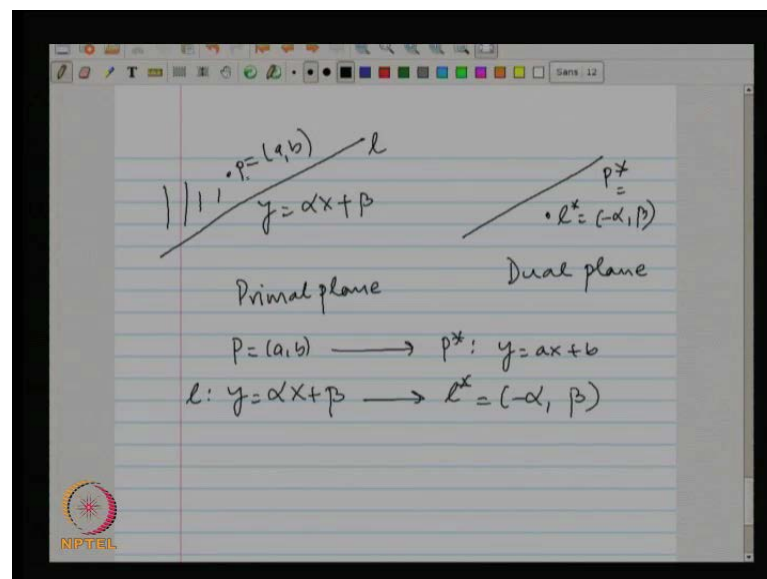 T
Sans 12
p=(a,b)
l
y=αx+β
p*
=
l*=(-α,β)
Primal plane
Dual plane
p=(a,b) → p*: y=ax+b
l: y=αx+β → l*=(-α, β)
NPTEL